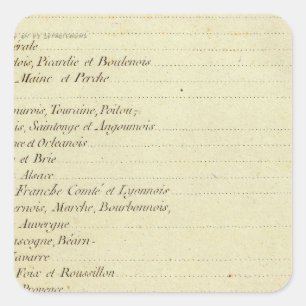 en 83 Départemens
érale
tois, Picardie et Boulenois
Maine et Perche
umurois, Touraine, Poitou,
is, Saintonge et Angoumois
e et Orleanois
e et Brie
Alsace
Franche Comté et Lyonnois
ernois, Marche, Bourbonnois,
Auvergne
ascogne, Béarn
avarre
Foix et Roussillon
Provence